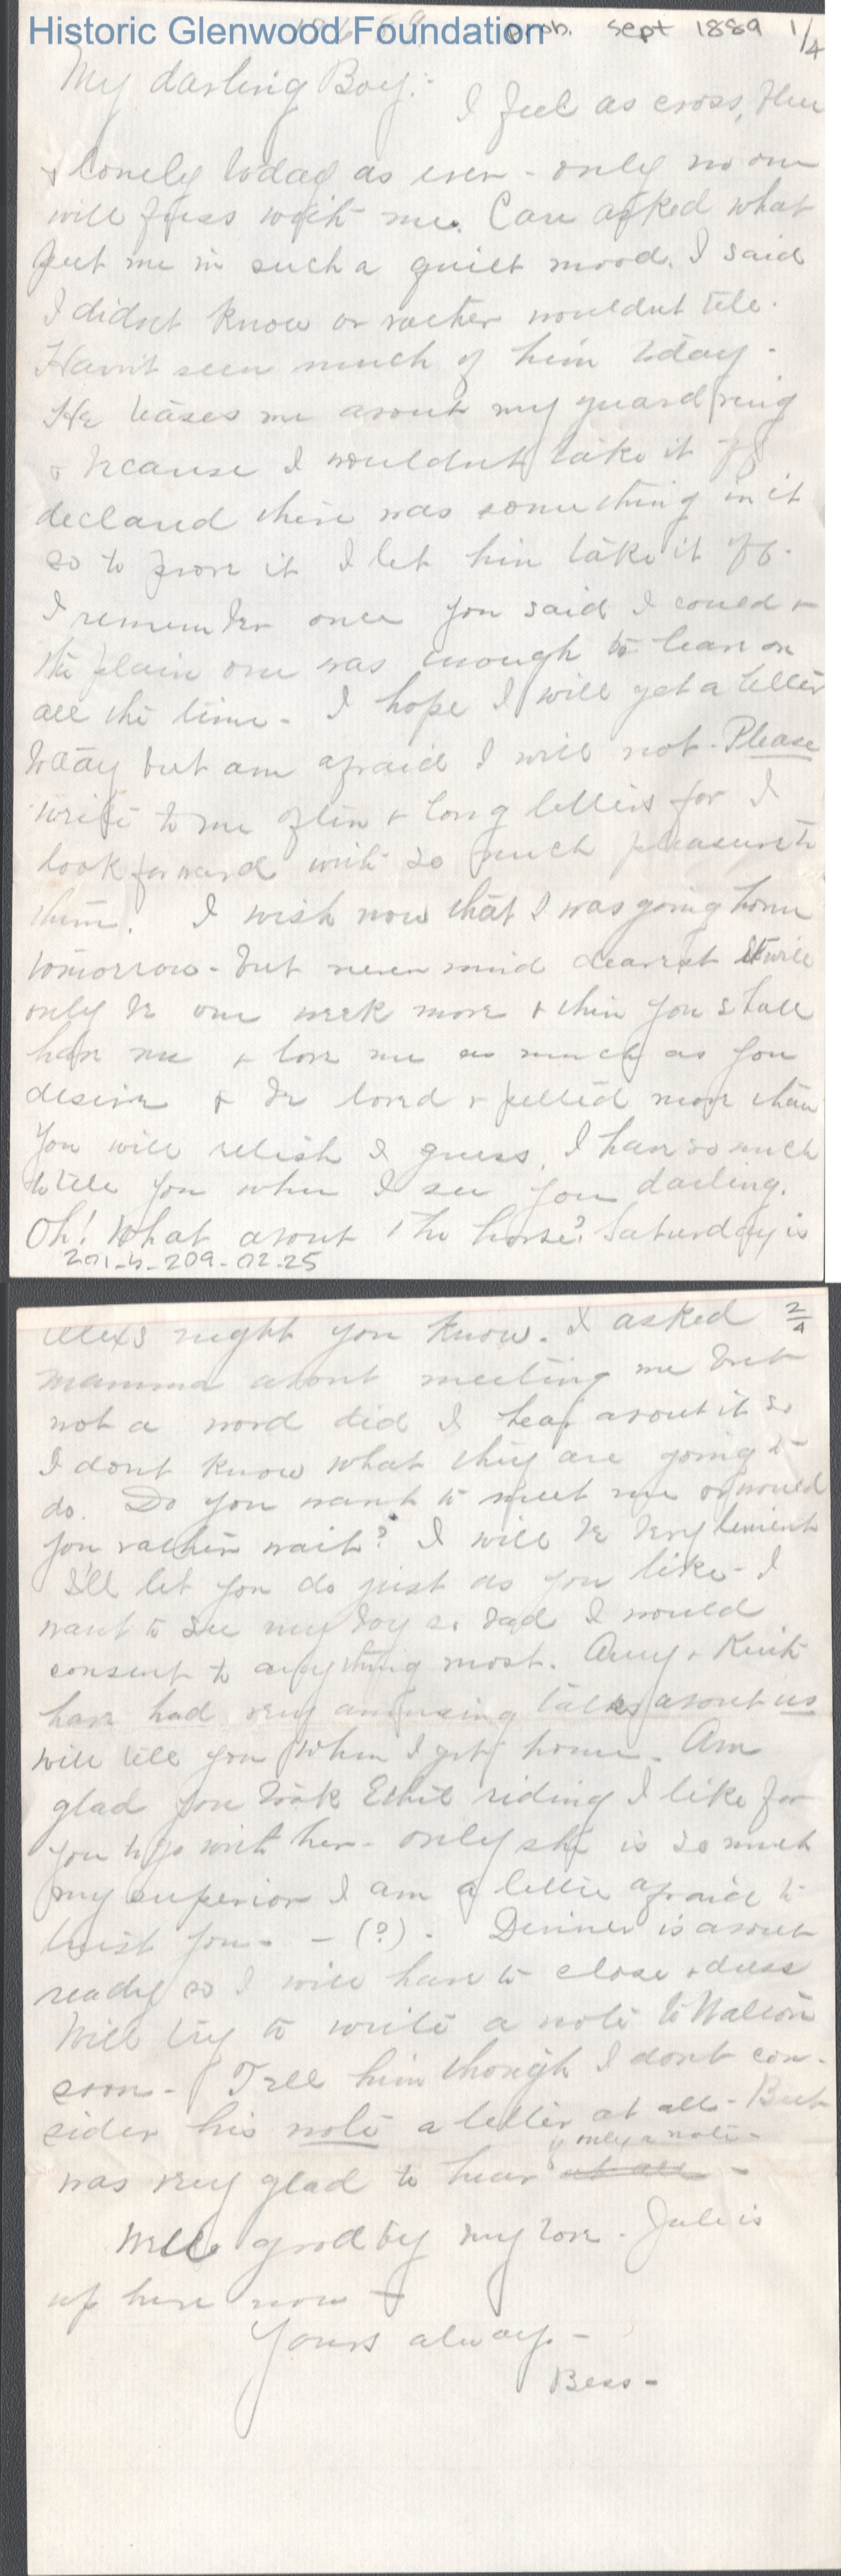 Historic Glenwood Foundation
prob. Sept 1889 1/4
My darling Boy:-
I feel as cross, blue
& lonely today as ever - only no one
will fuss with me. Can asked what
put me in such a quiet mood. I said
I didn't know or rather wouldnt tell.
Havn't seen much of him today -
He teases me about my guard ring
& because I wouldnt take it off
declared there was something in it
so to prove it I let him take it off.
I remember once you said I could &
the plain one was enough to leave on
all the time - I hope I will get a letter
today but am afraid I will not - Please
write to me often & long letters for I
look forward with so much pleasure to
them. I wish now that I was going home
tomorrow - but never mind dearest it will
only be one week more & then you shall
have me & love me as much as you
desire & be loved & petted more than
you will relish I guess. I have so much
to tell you when I see you darling.
Oh! What about the horse? Saturday is
201-4-209-02-25
Alex's night you know. I asked 2/4
mamma about meeting me but
not a word did I hear about it so
I dont know what they are going to
do. Do you want to meet me or would
you rather wait? I will be very lenient
I'll let you do just as you like - I
want to see my boy so bad I would
consent to anything most. Amy &
have had very amusing talks about us
will tell you when I get home - Am
glad you took Ethel riding I like for
you to go with her - only she is so much
my superior I am a little afraid to
trust you - - (?) - Dinner is about
ready so I will have to close & dress
Will try to write a note to Walton
soon - Tell him though I dont con-
sider his note a letter at all - But
if only a note -
was very glad to hear at all -
Well good by my love. Jule is
up here now -
Yours always -
Bess -